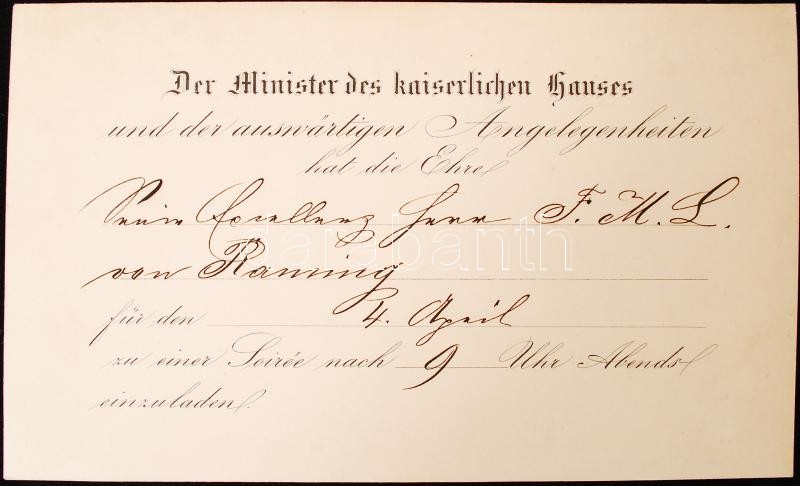 Der Minister des kaiserlichen Hauses
und der auswärtigen Angelegenheiten
hat die Ehre
Seine Excellenz Herr F. M. L.
von Raming
darabanth
für den 4. April
zu einer Soirée nach 9 Uhr Abends
einzuladen.